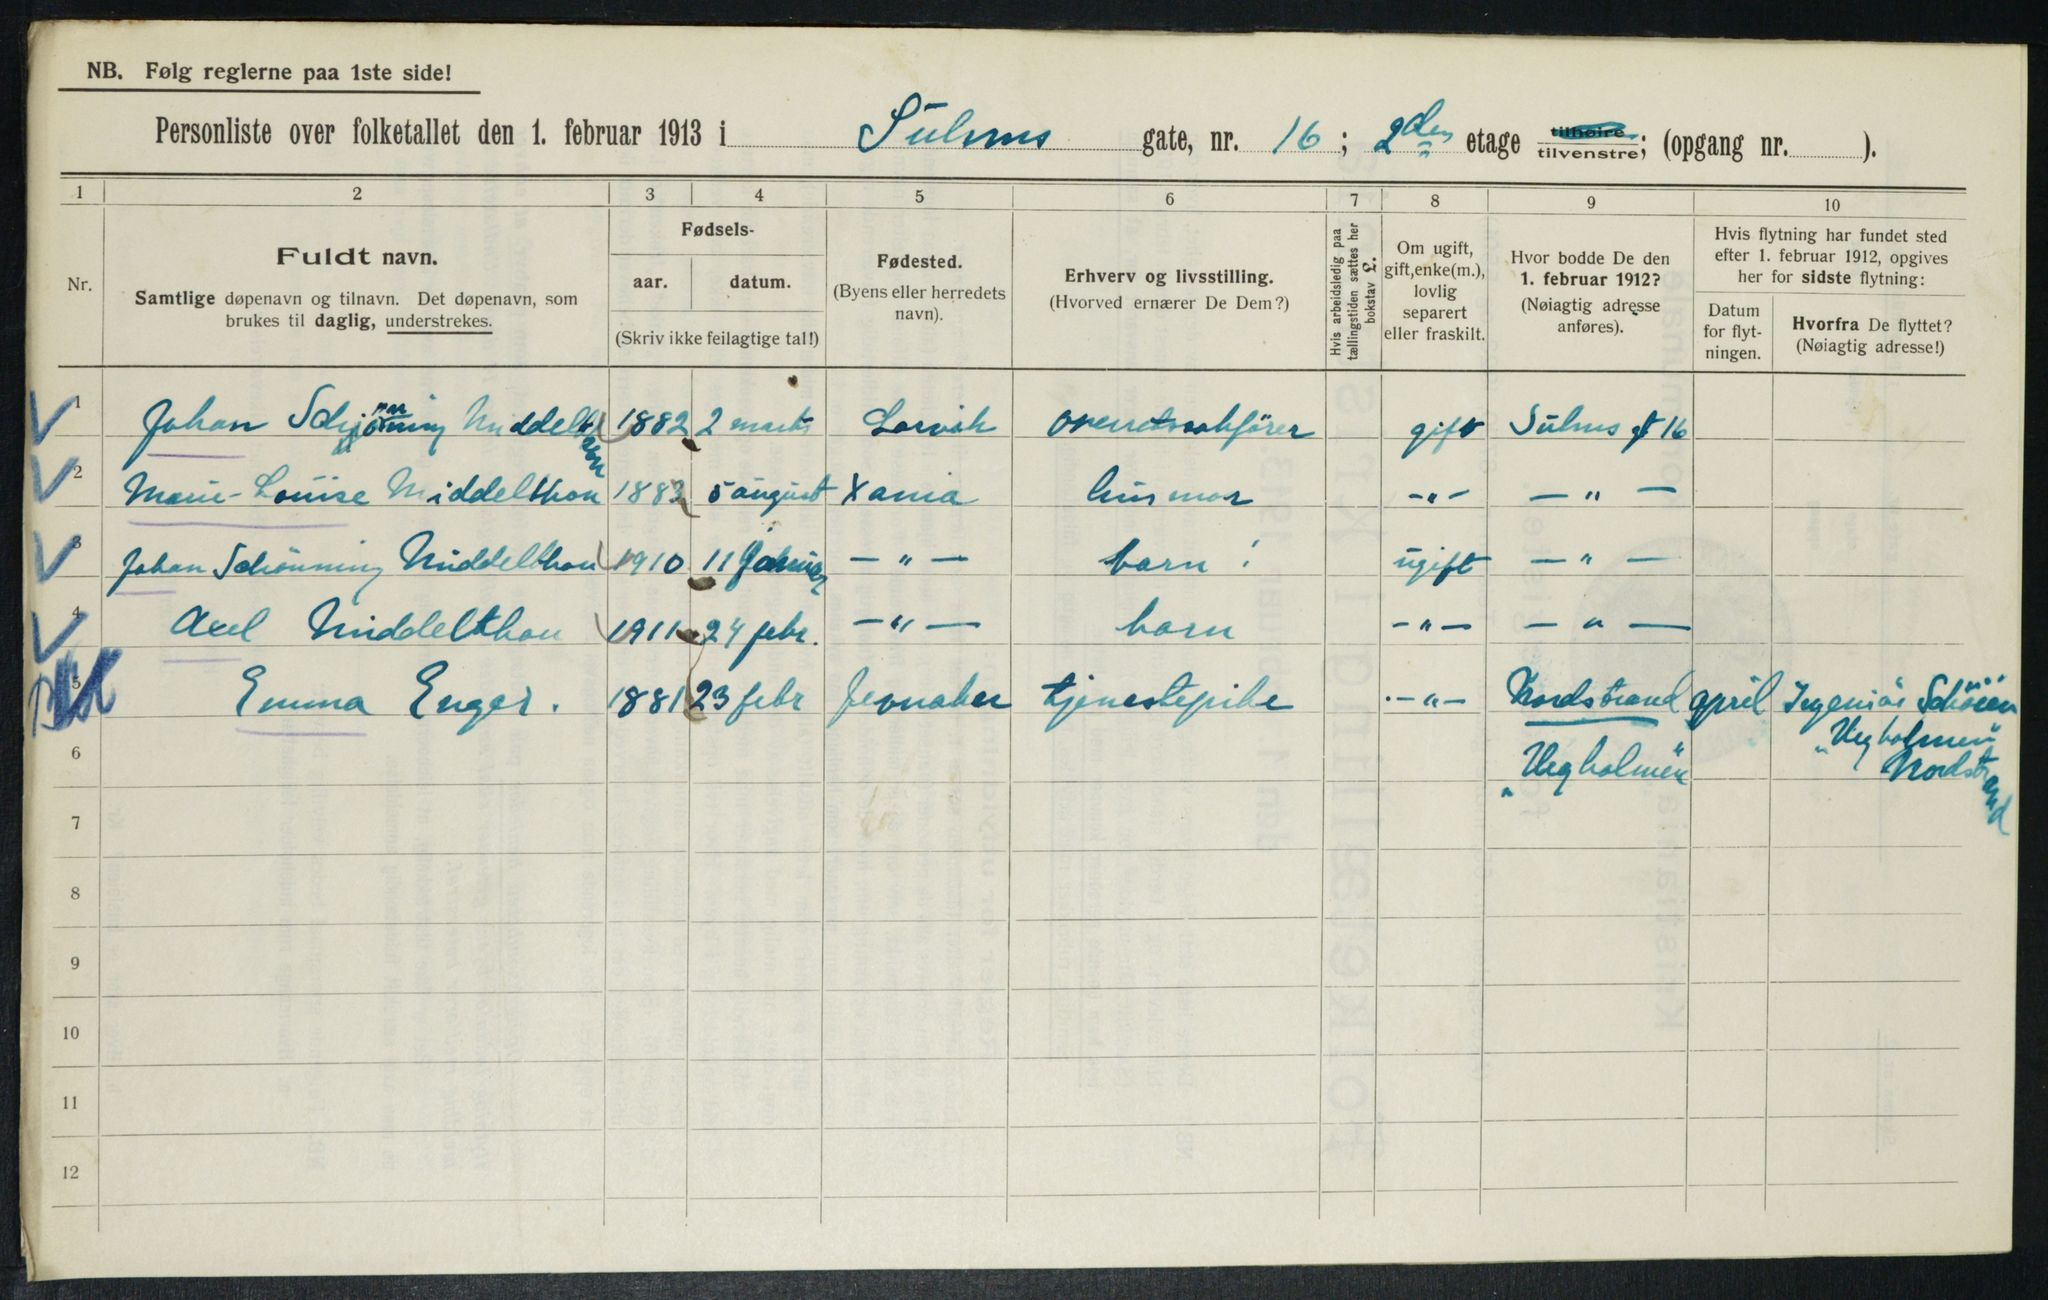 NB. Følg reglerne paa 1ste side!
Personliste over folketallet den 1. februar 1913 i Suhms gate, nr. 16; 2den etage tilhøire tilvenstre; (opgang nr. ).
1 2 3 4 5 6 7 8 9 10
Nr.
Fuldt navn.
Samtlige døpenavn og tilnavn. Det døpenavn, som
brukes til daglig, understrekes.
Fødsels-
aar. datum.
(Skriv ikke feilagtige tal!)
Fødested.
(Byens eller herredets
navn).
Erhverv og livsstilling.
(Hvorved ernærer De Dem?)
Hvis arbeidsledig paa
tællingstiden sættes her
bokstav £.
Om ugift,
gift, enke(m.),
lovlig
separert
eller fraskilt.
Hvor bodde De den
1. februar 1912?
(Nøiagtig adresse
anføres).
Hvis flytning har fundet sted
efter 1. februar 1912, opgives
her for sidste flytning:
Datum
for flyt-
ningen.
Hvorfra De flyttet?
(Nøiagtig adresse!)
1 Johan Schjønning Middelthon 1882 2 marts Larvik overretssakfører gift Suhms gt 16
2 Marie-Louise Middelthon 1883 5 august Xania husmor -"- — " —
3 Johan Schønning Middelthon 1910 11 Januar — " — barn ugift — " —
4 Axel Middelthon 1911 24 febr. — " — barn -"- — " —
5 Emma Enger. 1881 23 febr Jevnaker tjenestepike -"- Nordstrand april Ingeniør Schøien
6 "Ulvøholmen" Nordstrand
7
8
9
10
11
12